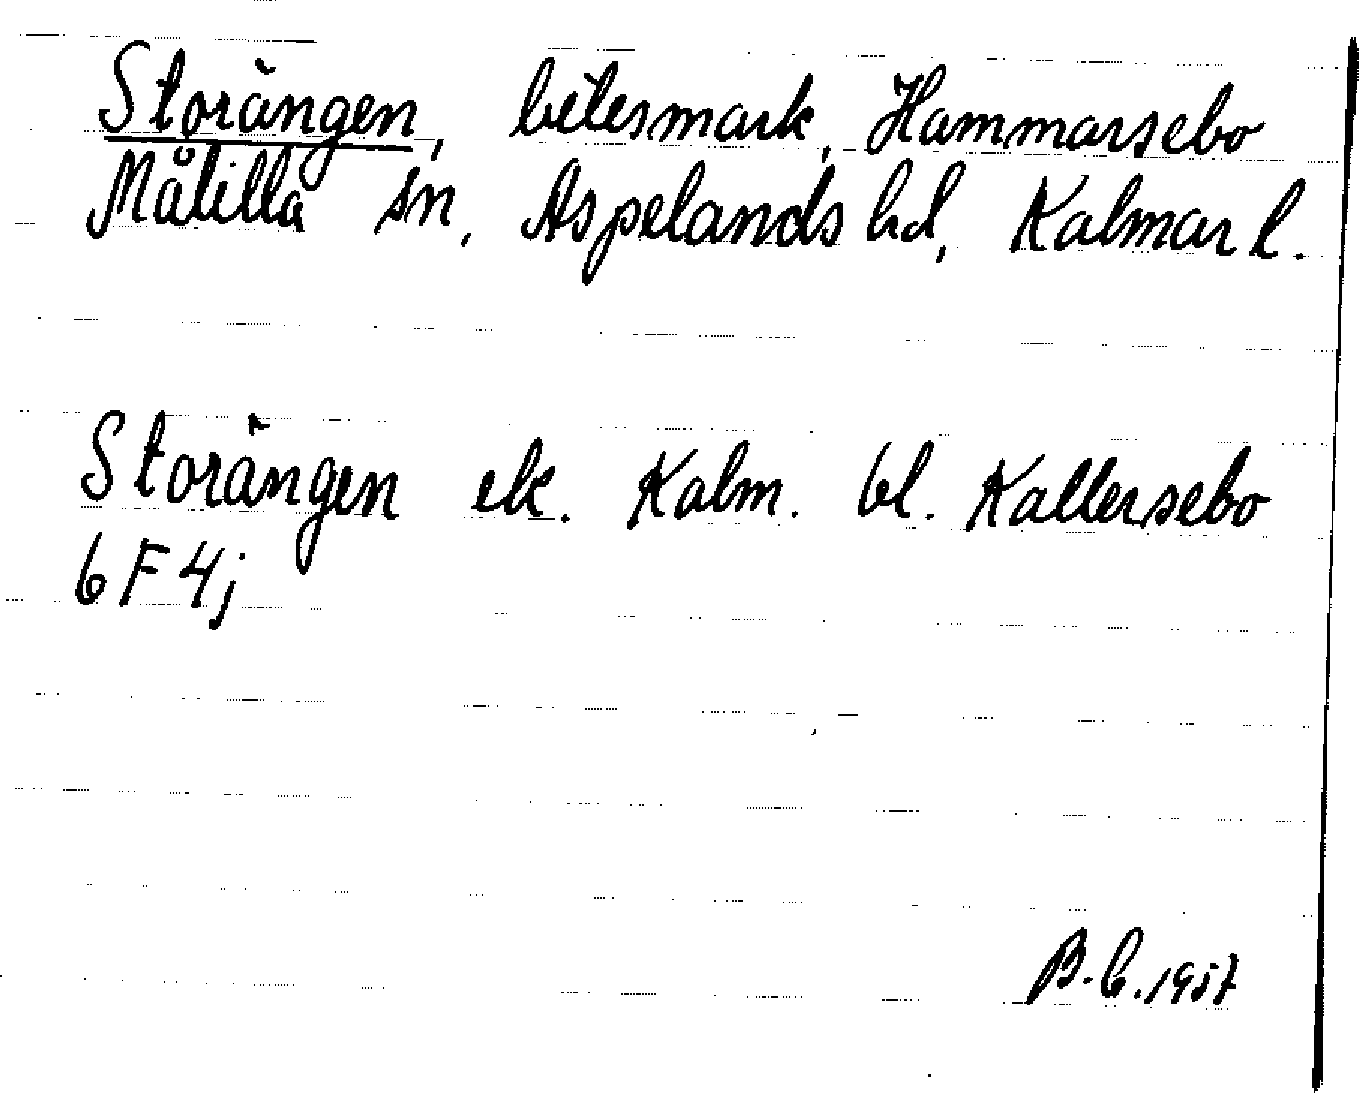 Storängen, betesmark, Hammarsebo
Målilla sn, Aspelands hd, Kalmar l.
Storängen ek. Kalm. bl. Kallersebo
6 F 4j
B.C. 1957